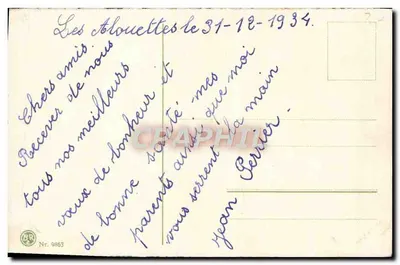 Les Alouettes le 31-12-1934.
Chers amis.
Recever de nous
tous nos meilleurs
vœux de bonheur et
de bonne santé. mes
parents ainsi que moi
vous serrent la main
Jean Perrier.
CPAPHIL
Nr. 6863